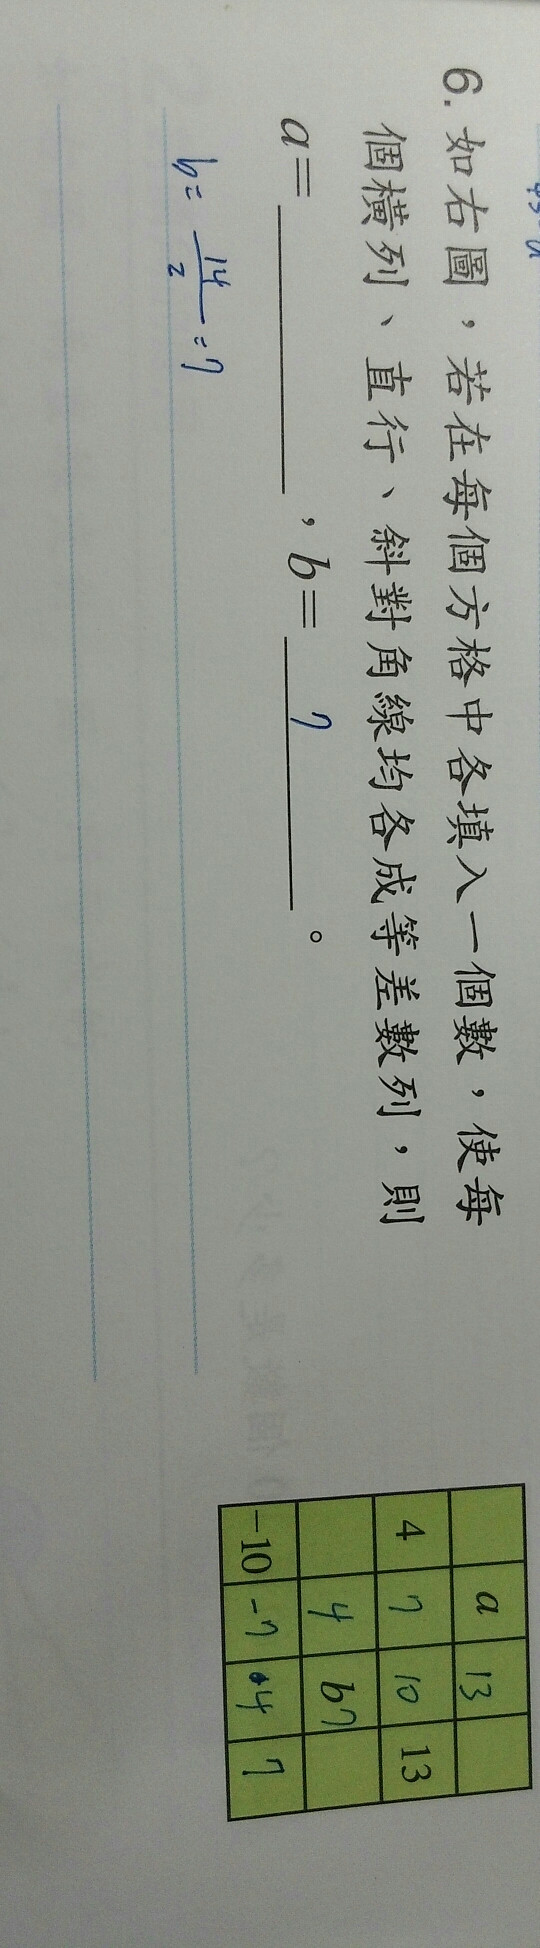 6. 如右圖，若在每個方格中各填入一個數，使每
個橫列、直行、斜對角線均各成等差數列，則
a=________，b= 7 。
b= 14/2 = 7
a 13
4 7 10 13
4 b 7
-10 -7 4 7